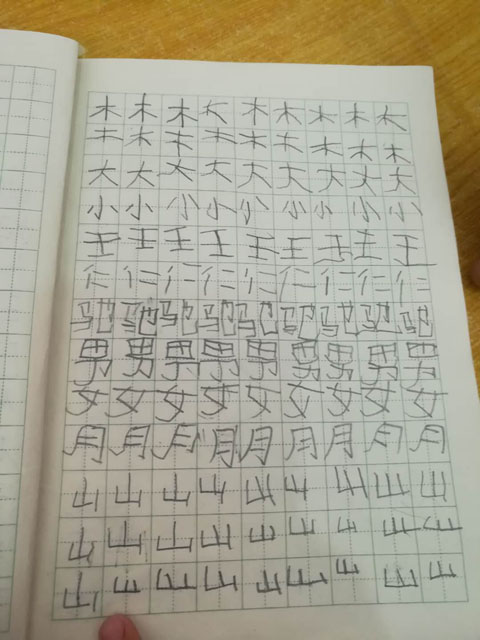 木木木木木木木木木
木木木木木木木木木
大大大大大大大大大
小小小小小小小小小
王王王王王王王王王
仁仁仁仁仁仁仁仁仁
驼驼驼驼驼驼驼驼驼
男男男男男男男男男
女女女女女女女女女
月月月月月月月月月
山山山山山山山山山
山山山山山山山山山
山山山山山山山山山